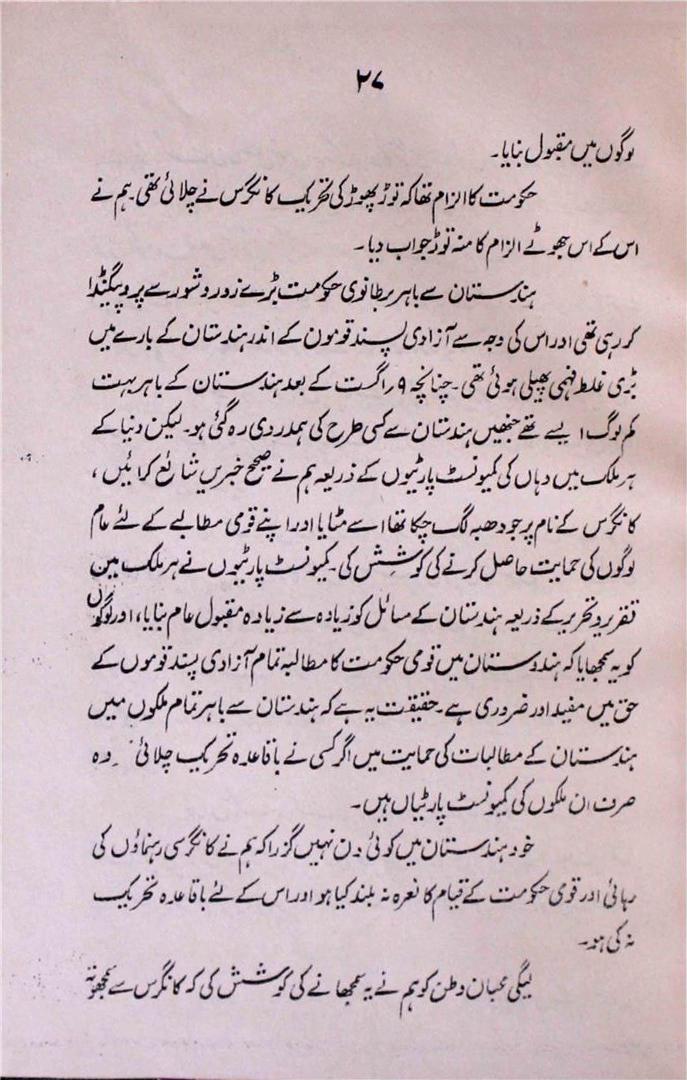 ۲۷
لوگوں میں مقبول بنایا۔
حکومت کا الزام تھا کہ توڑ پھوڑ کی تحریک کانگرس نے چلائی تھی۔ ہم نے
اس کے اس جھوٹے الزام کا منہ توڑ جواب دیا۔
ہندستان سے باہر برطانوی حکومت بڑے زور و شور سے پروپیگنڈا
کر رہی تھی اور اس کی وجہ سے آزادی پسند قومون کے اندر ہندستان کے بارے میں
بڑی غلط فہمی پھیلی ہوئی تھی۔ چنانچہ ۹ر اگست کے بعد ہندستان کے باہر بہت
کم لوگ ایسے تھے جنھیں ہندستان سے کسی طرح کی ہمدردی رہ گئی ہو۔ لیکن دنیا کے
ہر ملک میں وہاں کی کمیونسٹ پارٹیوں کے ذریعہ ہم نے صحیح خبریں شائع کرائیں،
کانگرس کے نام پر جو دھبہ لگ چکا تھا اسے مٹایا اور اپنے قومی مطالبے کے لئے عام
لوگوں کی حمایت حاصل کرنے کی کوشش کی۔ کمیونسٹ پارٹیوں نے ہر ملک مین
تقریر و تحریر کے ذریعہ ہندستان کے مسائل کو زیادہ سے زیادہ مقبول عام بنایا، اور لوگوں
کو یہ سمجھایا کہ ہندوستان میں قومی حکومت کا مطالبہ تمام آزادی پسند قوموں کے
حق میں مفید اور ضروری ہے۔ حقیقت یہ ہے کہ ہندستان سے باہر تمام ملکوں میں
ہندستان کے مطالبات کی حمایت میں اگر کسی نے باقاعدہ تحریک چلائی وہ
صرف ان ملکوں کی کمیونسٹ پارٹیاں ہیں۔
خود ہندستان میں کوئی دن نہیں گزرا کہ ہم نے کانگرسی رہنماؤں کی
رہائی اور قومی حکومت کے قیام کا نعرہ نہ بلند کیا ہو اور اس کے لئے باقاعدہ تحریک
نہ کی ہو۔
لیگی محبان وطن کو ہم نے یہ سمجھانے کی کوشش کی کہ کانگرس سے سمجھوتہ